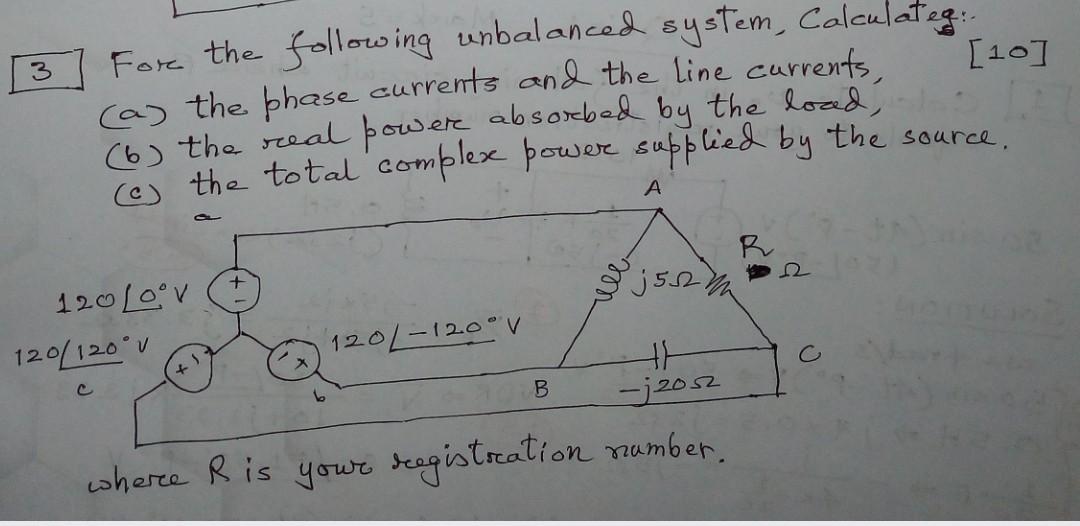 3 For the following unbalanced system, Calculate:-
[10]
(a) the phase currents and the line currents,
(b) the real power absorbed by the load,
(c) the total complex power supplied by the source.
a
A
R
Ω
j5Ω
120∠0° V
+
-
120∠120° V
120∠-120° V
+
-
-
+
c
b
B
-j20Ω
C
where R is your registration number.